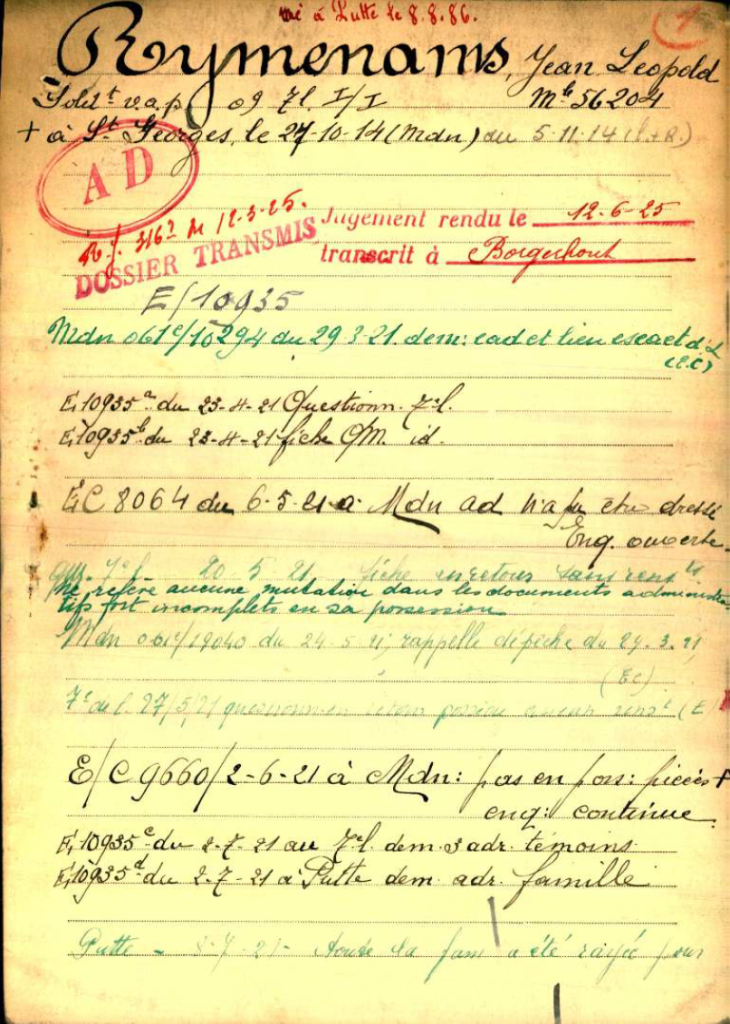 né à Putte le 8.8.86.
1
Rymenams, Jean Leopold
Soldt v.a.p. 09 7l. I/I Mle 56204
+ à St Georges, le 27-10-14 (Mdn) du 5-11-14
AD
12-3-25.
Jugement rendu le 12-6-25
DOSSIER TRANSMIS
transcrit à Borgerhout
E/10935
Mdn 061e/10294 du 29-3-21. dem: cad et lieu
(E.C)
E,10935a du 23-4-21 Questionn. 7e l.
E,10935b du 23-4-21 fiche O/M. id.
E,C 8064 du 6-5-21 à Mdn ad n'a pu être dressé
Enq. ouverte.
20-5-21 fiche en retour sans renst
Ne relève aucune mutation dans les documents administra-
tifs fort incomplets en sa possession
Mdn 061e/19040 du 24-5-21, rappelle dépêche du 29.3.21,
(EC)
7e de l. 27/5/21 questionn en retour aucun renst (E
E/C 9660/2-6-21 à Mdn: pas en poss: pièces +
enq: continue.
E,10935c du 2-7-21 au 7e l. dem. 3 adr. témoins.
E,10935d du 2-7-21 à Putte dem. adr. famille
Putte - 7-21- la fam a été rayée pour